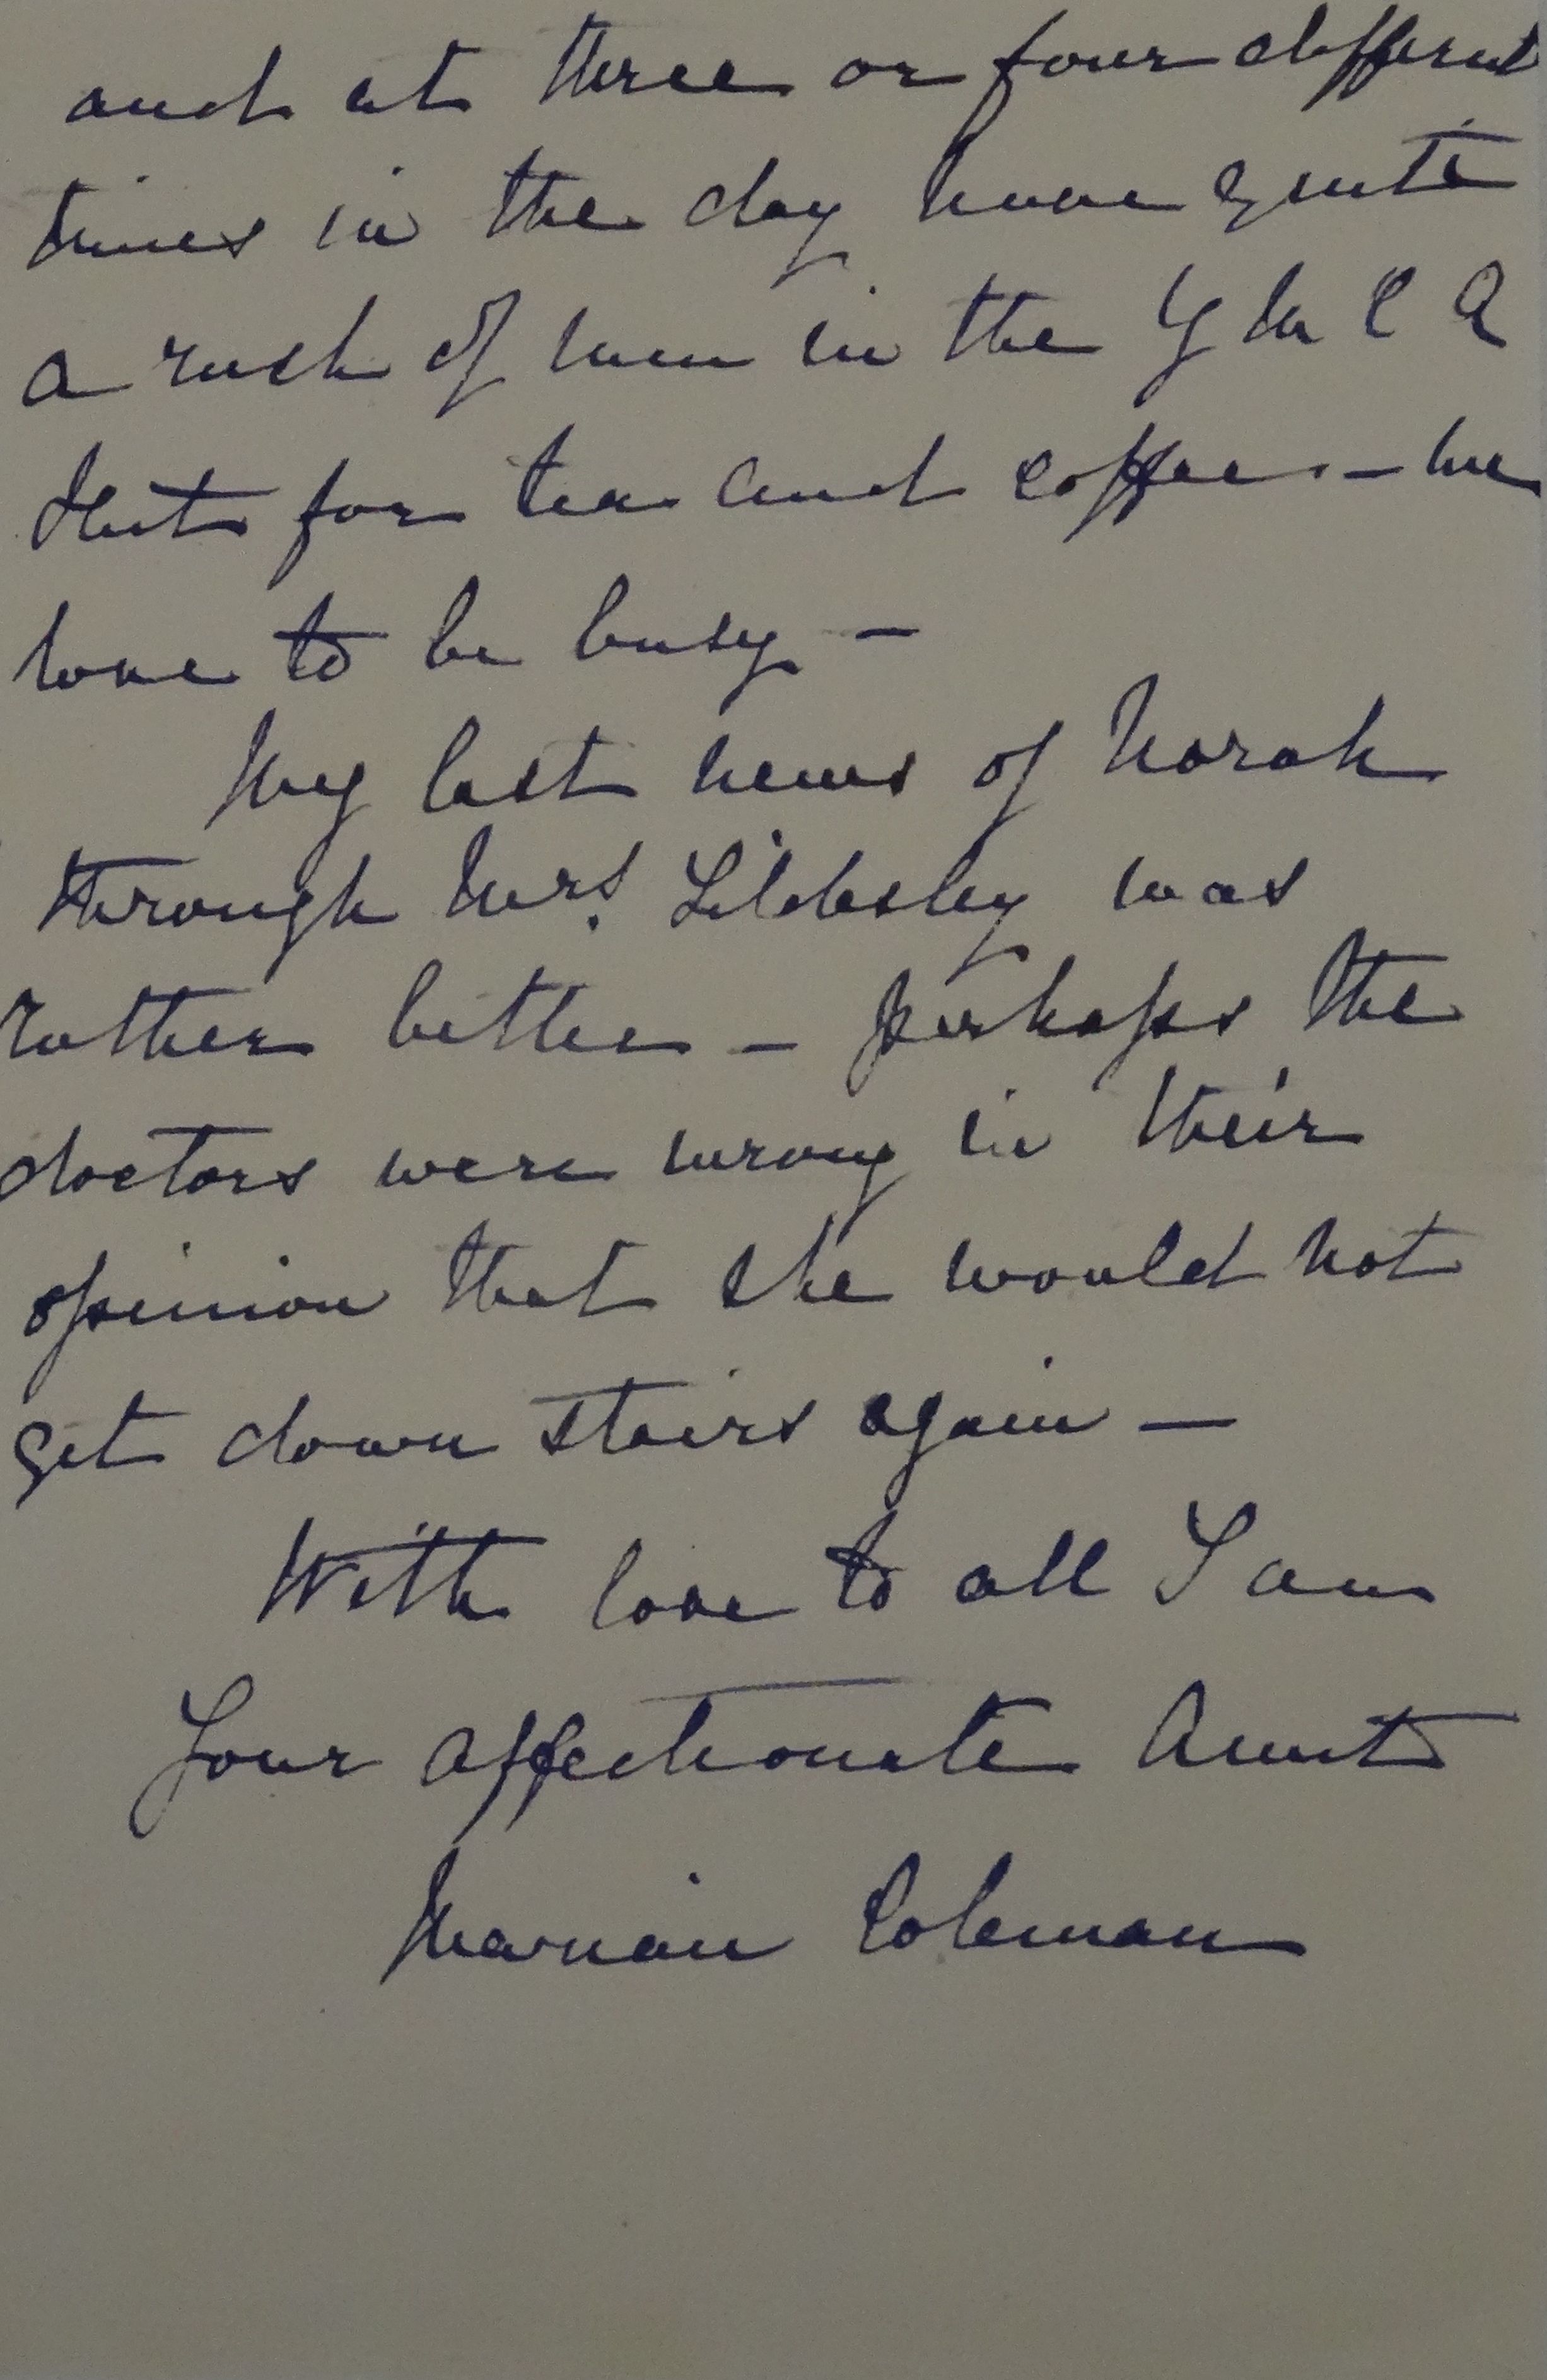 and at three or four different
times in the day have quite
a rush of men in the Y M C A
Hut for tea and coffee. – we
love to be busy –
My last news of Norah
through Mrs. Lildesley was
rather better – perhaps the
doctors were wrong in their
opinion that she would not
get down stairs again –
With love to all I am
Your affectionate Aunt
Marian Coleman